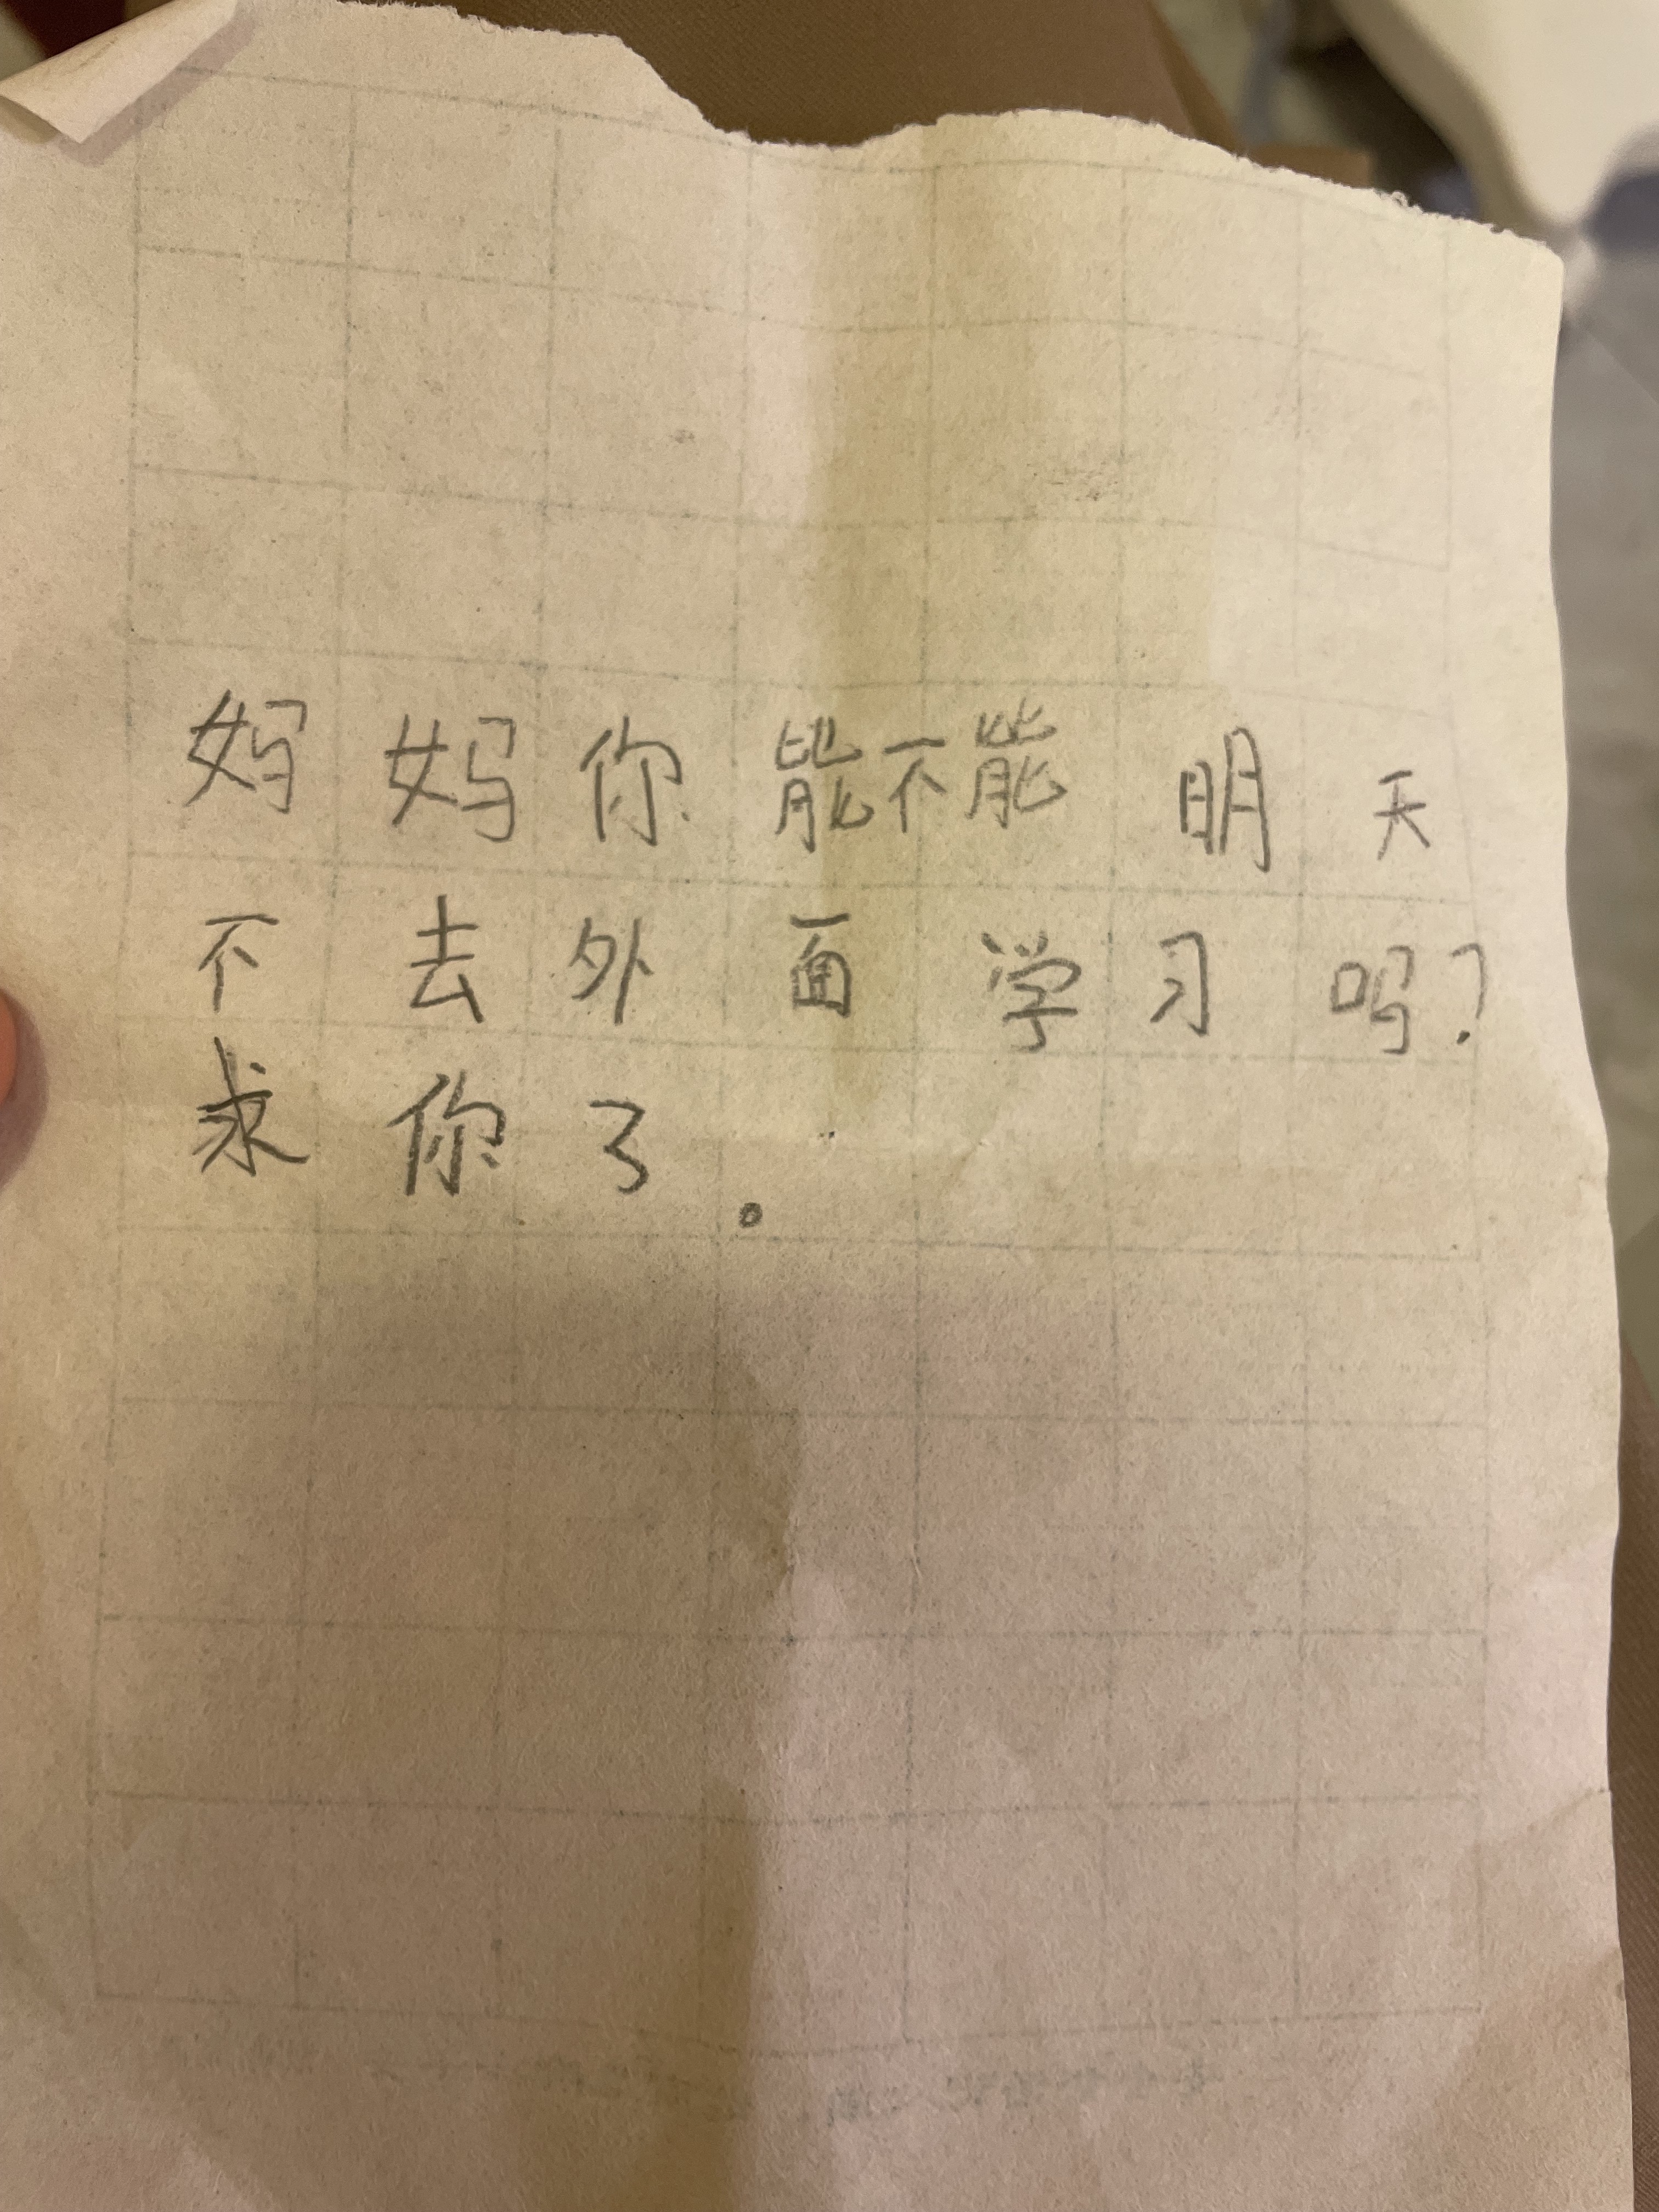 妈妈你能不能明天
不去外面学习吗?
求你了。